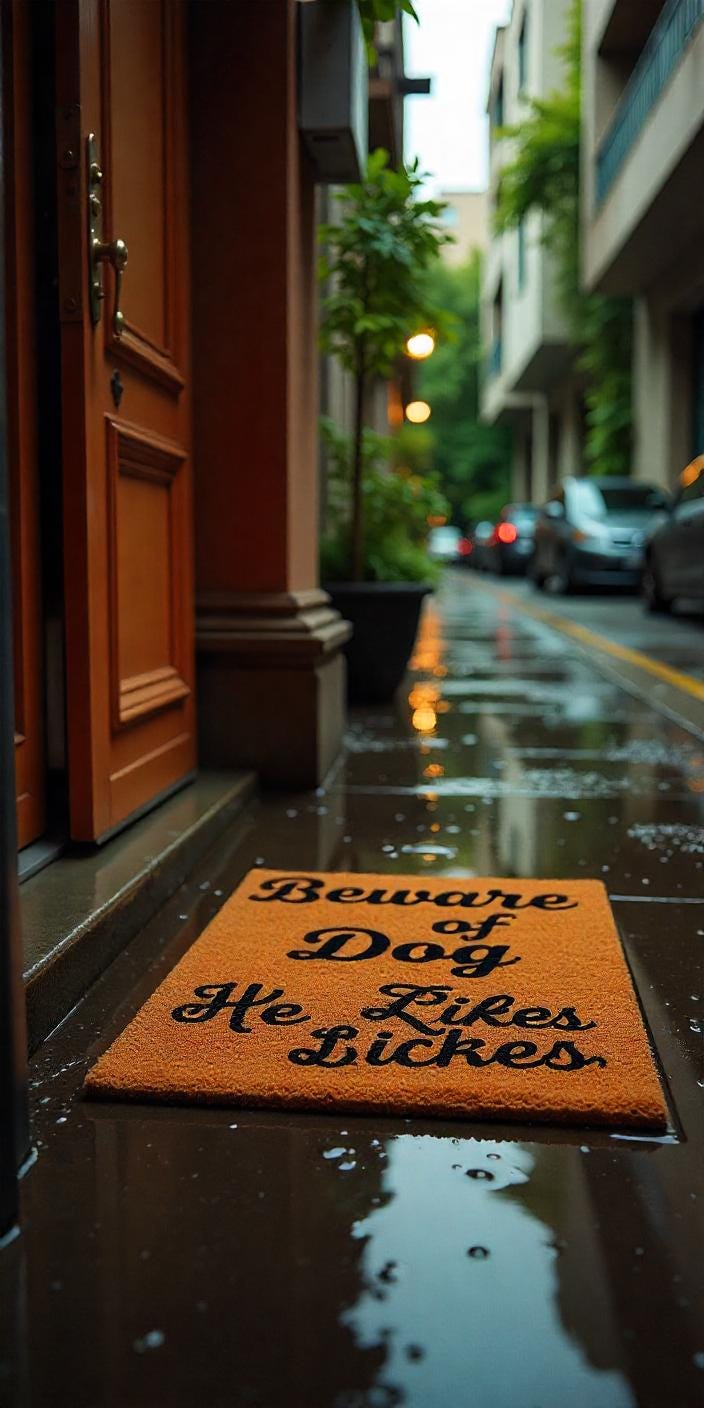 Beware
of
Dog
He Likes
Lickes